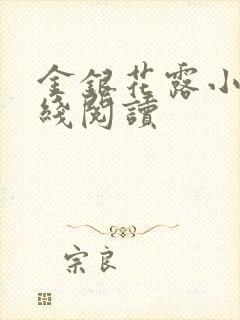 金銀花露小
綫閱讀
宗良